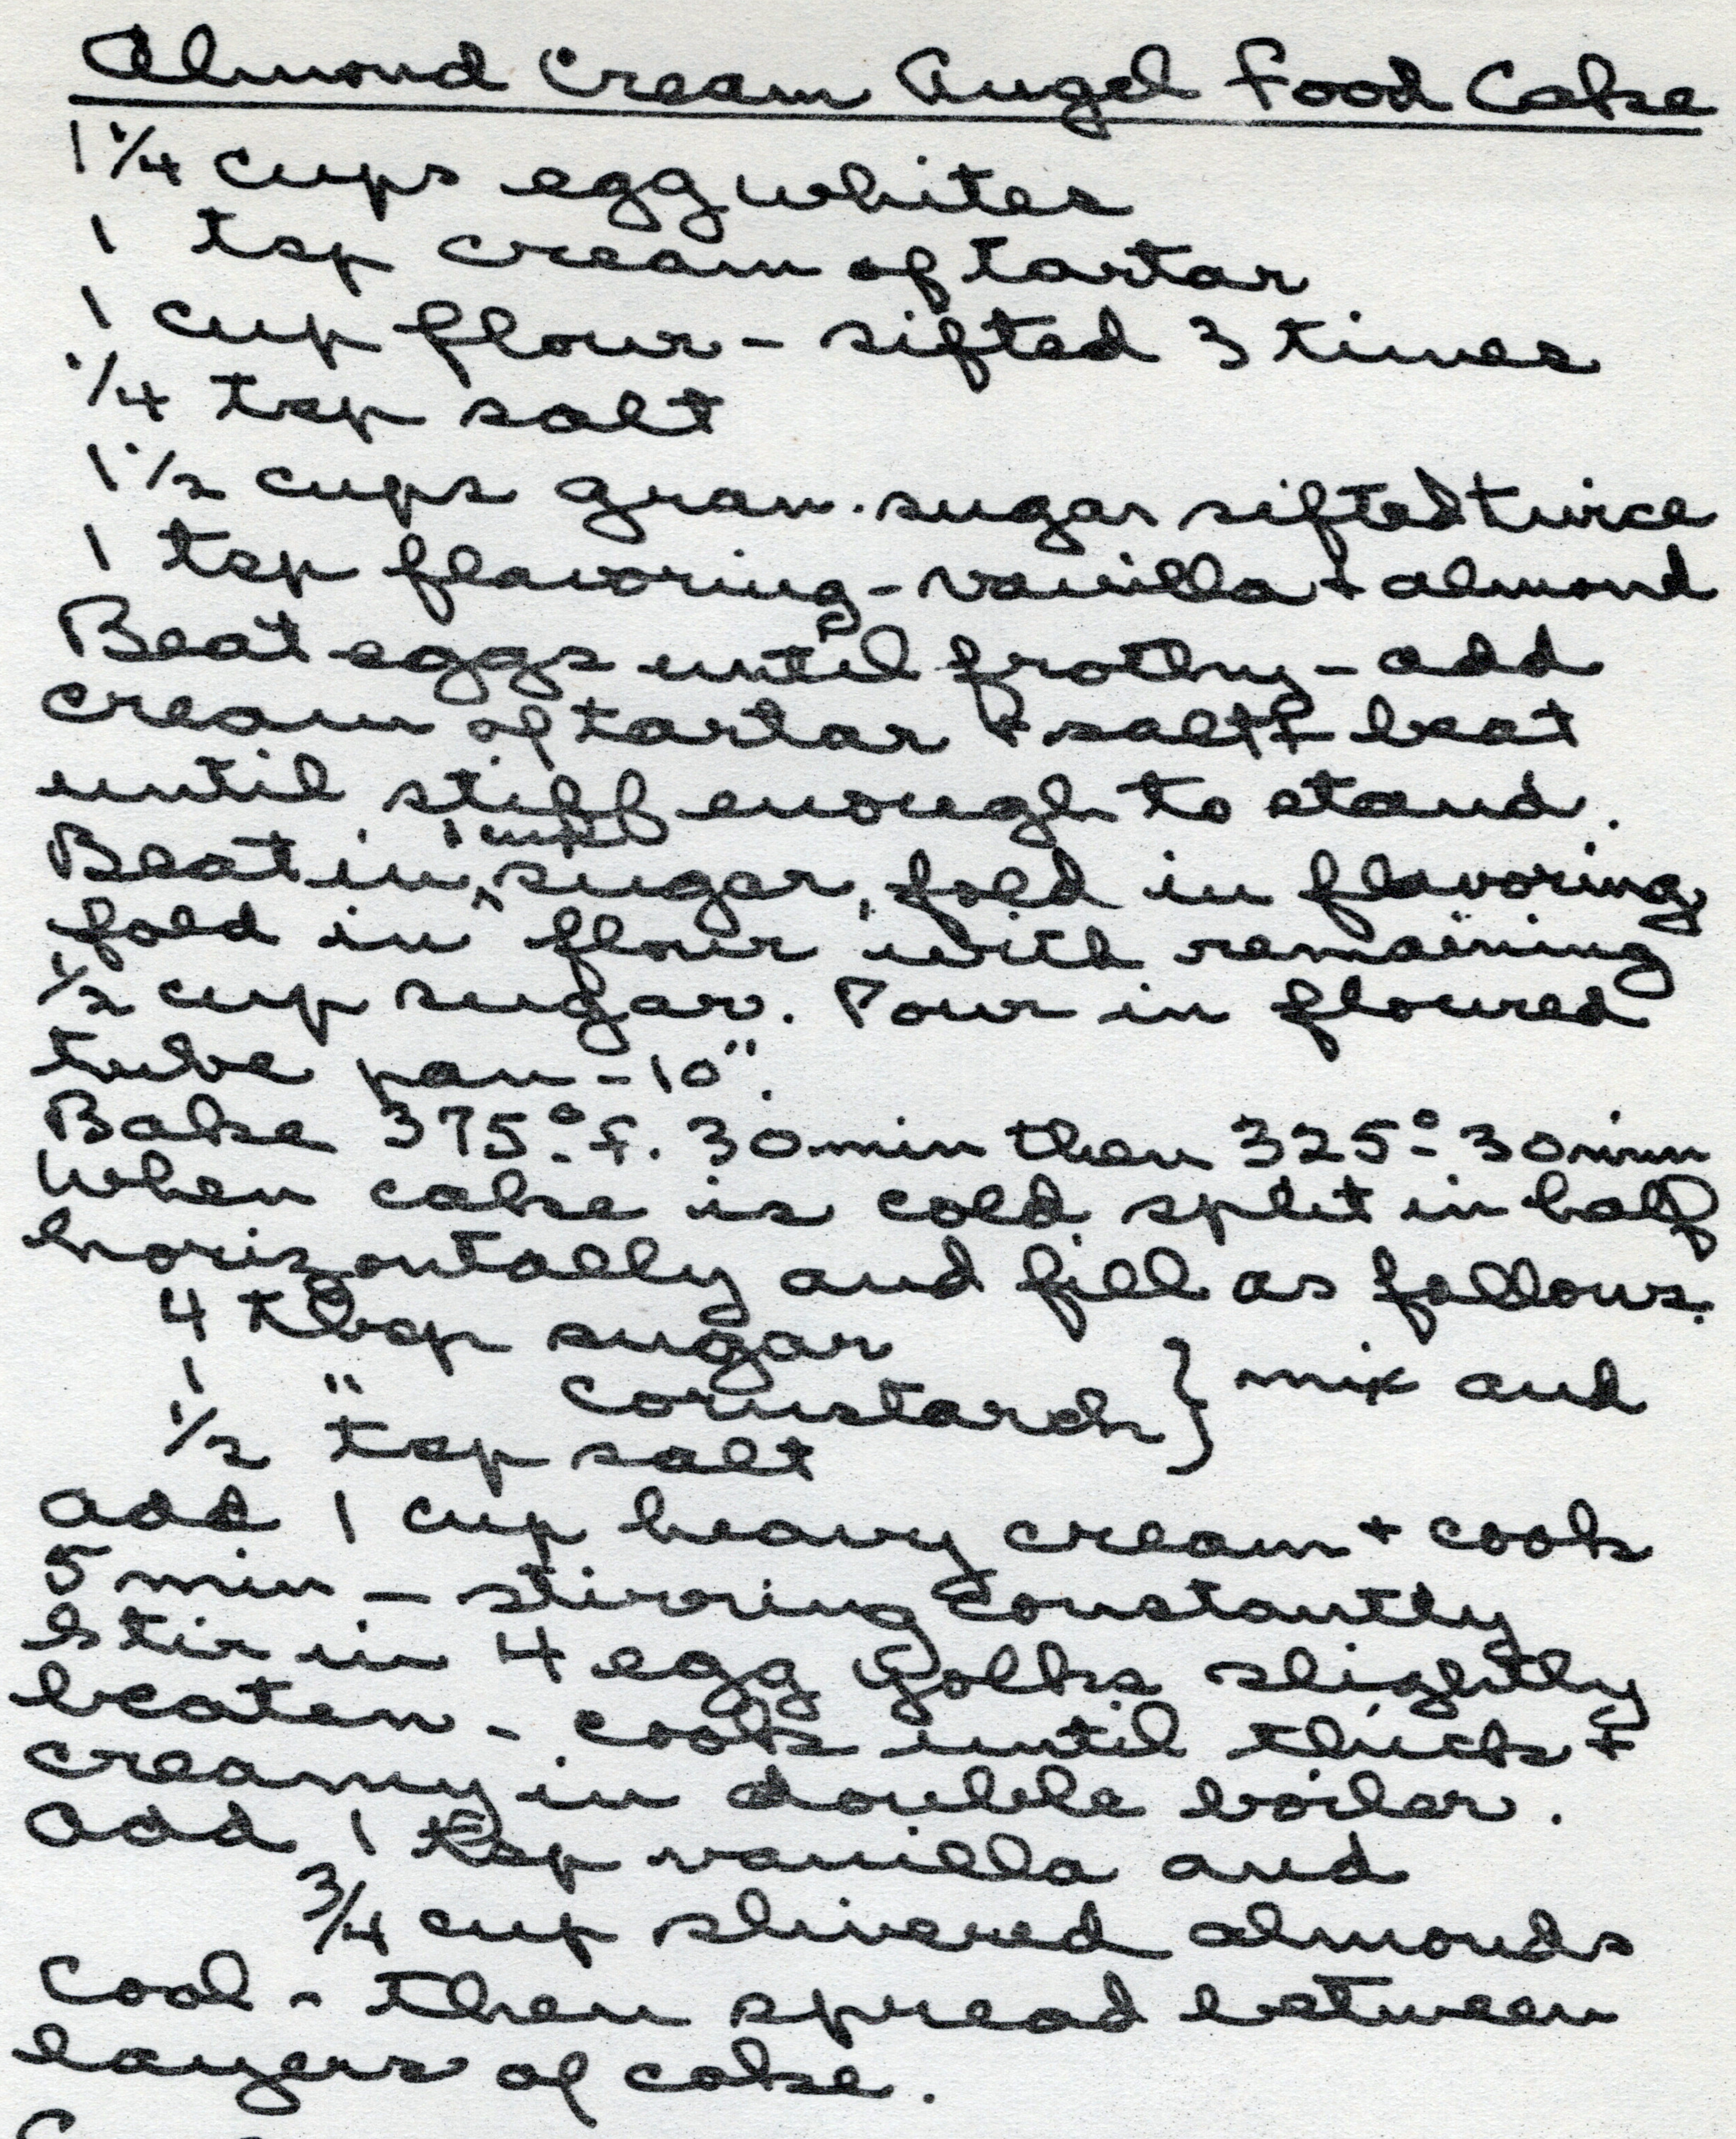 Almond Cream Angel Food Cake
1 1/4 cups egg whites
1 tsp cream of tartar
1 cup flour - sifted 3 times
1/4 tsp salt
1 1/2 cups gran. sugar sifted twice
1 tsp flavoring - vanilla + almond
Beat eggs until frothy - add
cream of tartar + salt + beat
until stiff enough to stand.
Beat in 1 cup sugar, fold in flavoring
fold in flour with remaining
1/2 cup sugar. Pour in floured
tube pan - 10".
Bake 375° F. 30 min then 325° 30 min
When cake is cold split in half
horizontally and fill as follows.
4 tbsp sugar
1 " cornstarch } mix and
1/2 tsp salt
add 1 cup heavy cream + cook
5 min - stirring constantly
Stir in 4 egg yolks slightly
beaten - cook until thick +
creamy in double boiler.
add 1 tsp vanilla and
3/4 cup slivered almonds
Cool - then spread between
layers of cake.